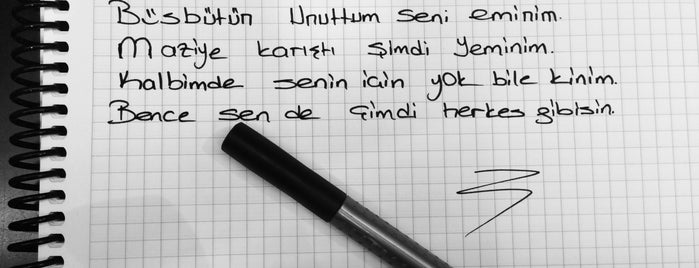 Büsbütün Unuttum seni eminim.
Maziye karıştı şimdi Yeminim.
Kalbimde senin için yok bile kinim.
Bence sen de şimdi herkes gibisin.